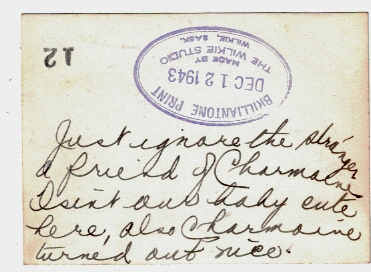 12
BRILLIANTONE PRINT
DEC 12 1943
MADE BY
THE WILKIE STUDIO
WILKIE, SASK.
Just ignore the stranger
a friend of Charmaine
Isint our baby cute
here, also Charmaine
turned out nice.